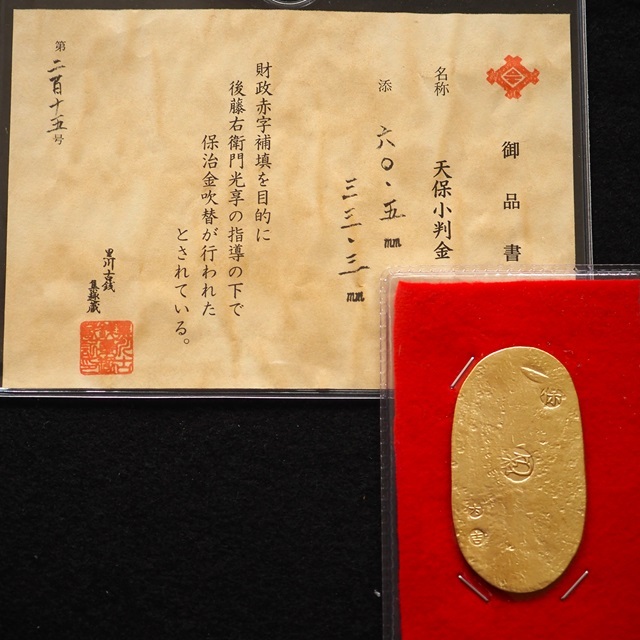 御品書
名称 天保小判金
添 六〇・五 mm
三三・三 mm
財政赤字補填を目的に
後藤右衛門光享の指導の下で
保治金吹替が行われた
とされている。
第二百十五号
黒川古銭
集趣蔵
保
吉